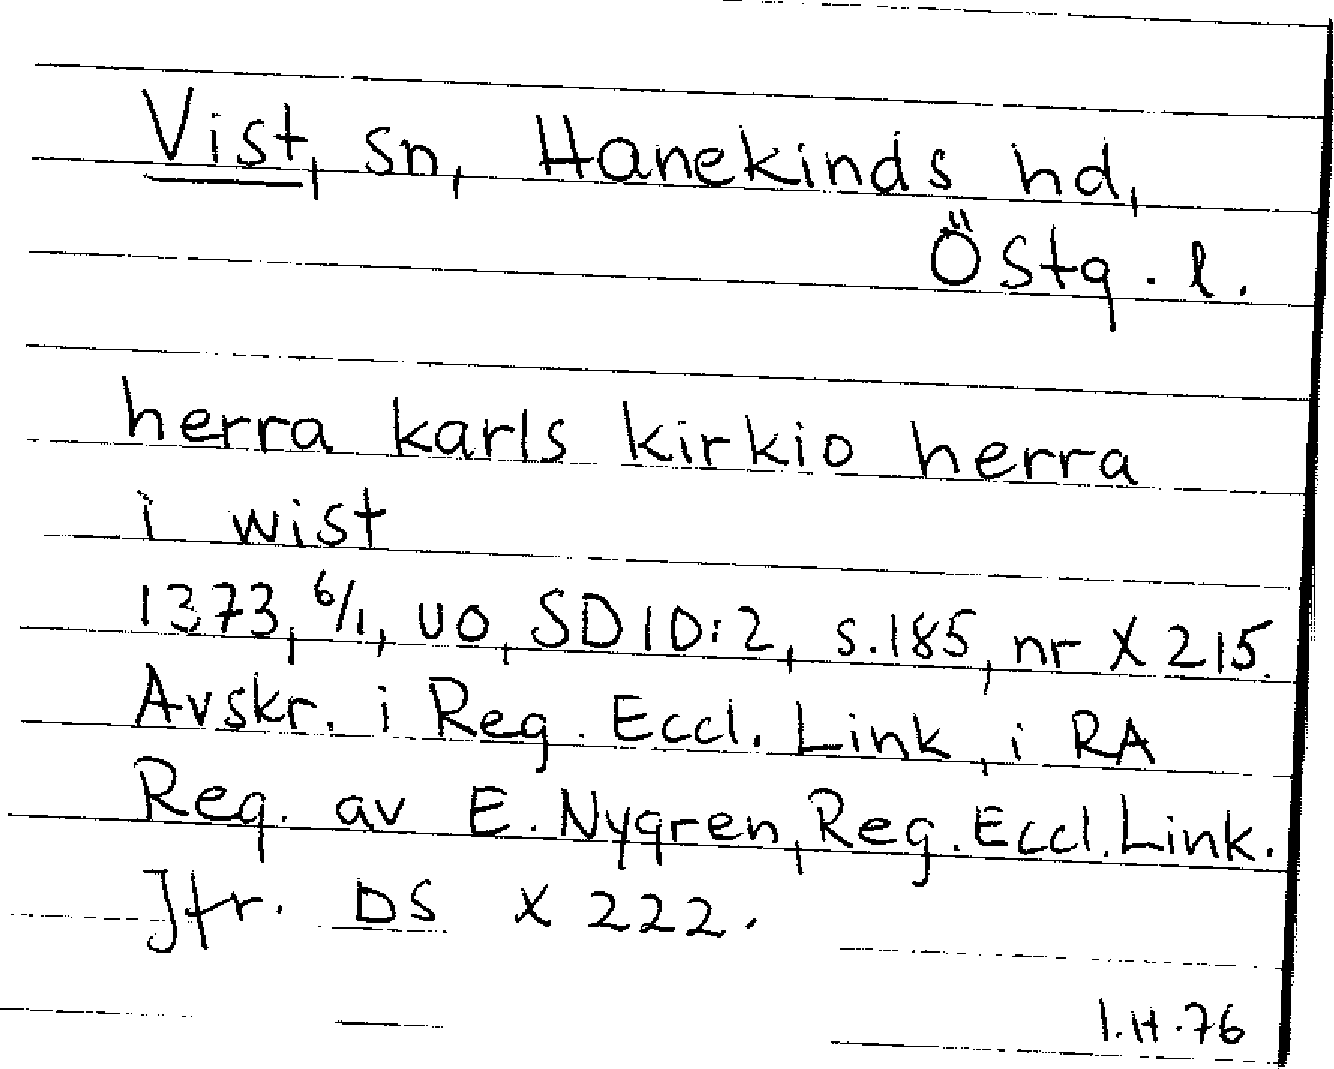 Vist, sn, Hanekinds hd,
Östg. l.
herra karls kirkio herra
i wist
1373, 6/1, uo, SD 10:2, s.185, nr X 215.
Avskr. i Reg. Eccl. Link, i RA
Reg. av E. Nygren, Reg. Eccl. Link.
Jfr. DS X 222.
I.H.76